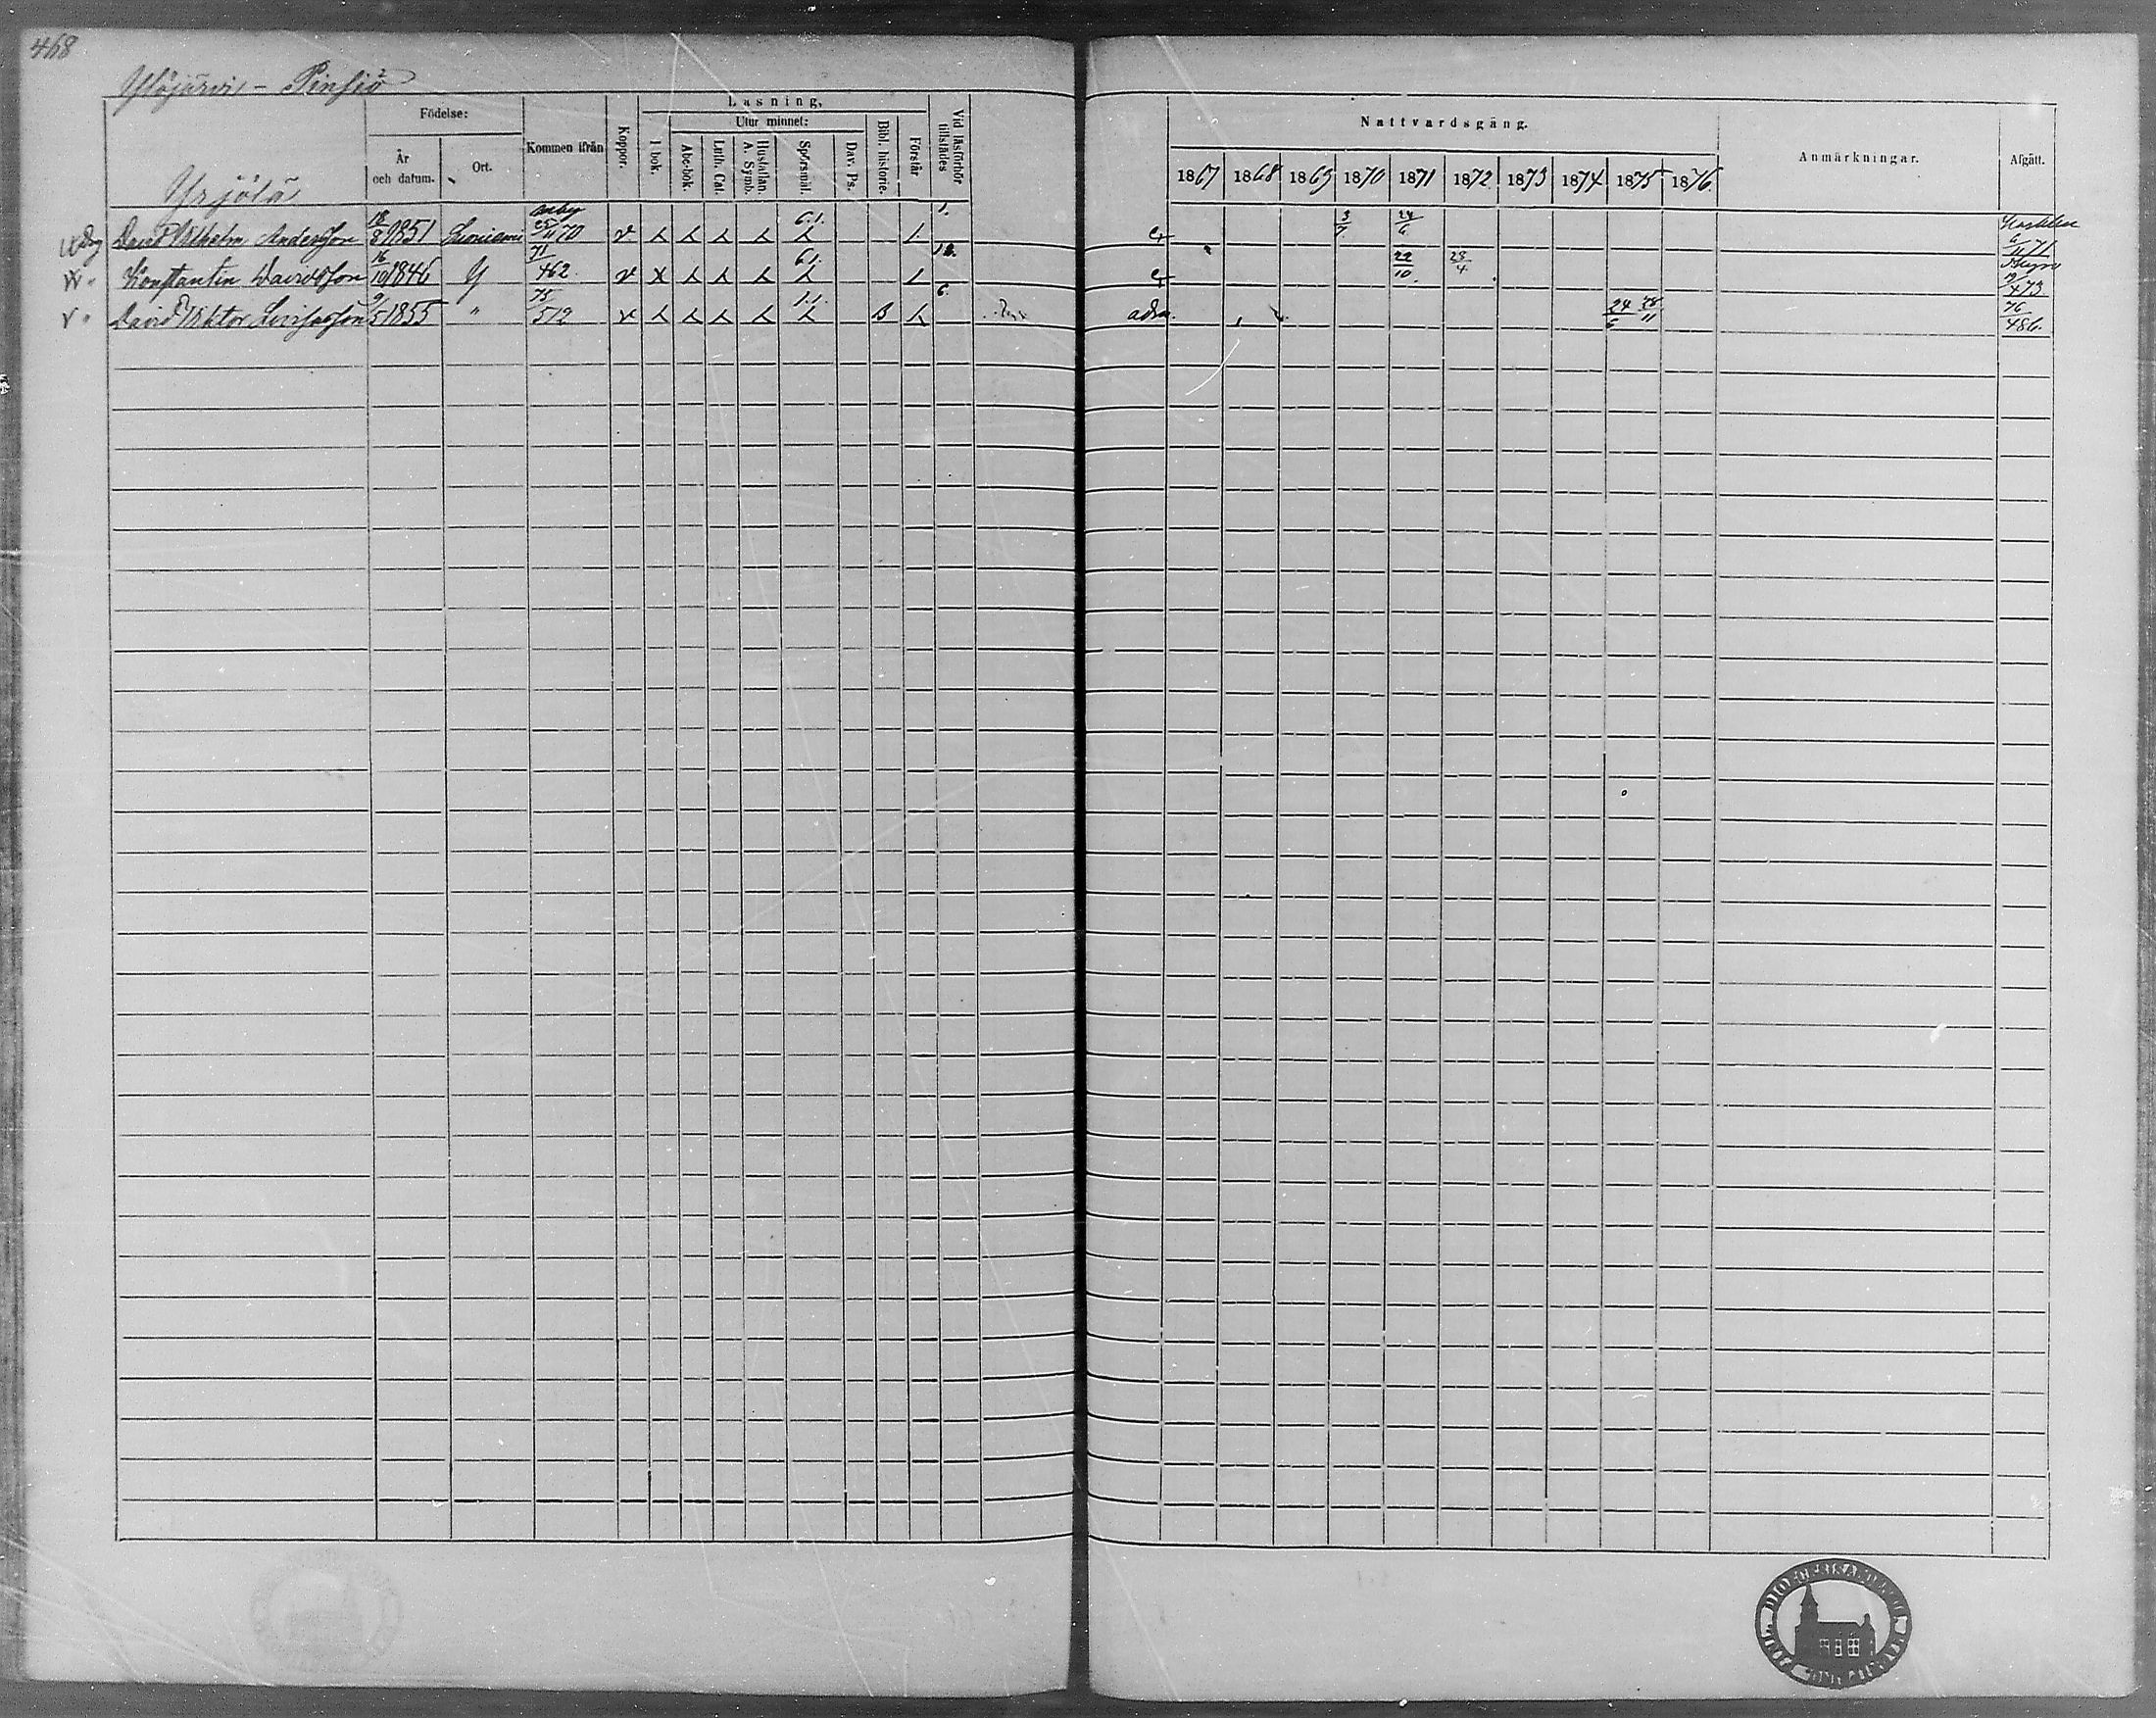 468
Ylöjärvi - Pinsiö
Födelse:
År och datum.
Ort.
Kommen ifrån
Koppor.
Läsning,
I bok.
Utur minnet:
Abc-bok.
Luth. Cat.
Hustaflan. A. Symb.
Spörsmål.
Dav. Ps.
Bibl. historie.
Förstår
Vid läsförhör tillstädes
Nattvardsgång.
1867 1868 1869 1870 1871 1872 1873 1874 1875 1876
Anmärkningar.
Afgått.
Yrjölä
Drg David Wilhelm Andersson 18/8 1851 Suoniemi 25/11 70 v 6.1. 1. 3/7 24/6 6/11 71
" Konstantin Davidsson 16/10 1846 Y 71/462 v 6.1. 22/10 28/4 473
" David Viktor 9/5 1855 " 75/512 v 1.1. B 6. adm. 24/6 76/486.